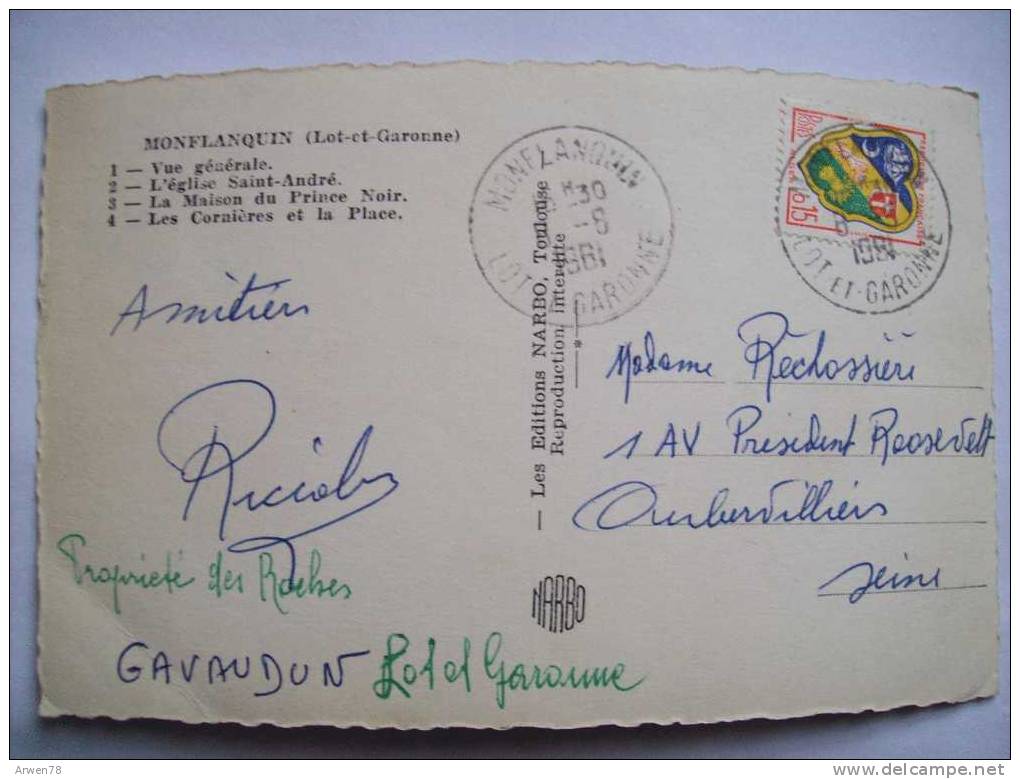 MONFLANQUIN (Lot-et-Garonne)
1 — Vue générale.
2 — L'église Saint-André.
3 — La Maison du Prince Noir.
4 — Les Cornières et la Place.
Amitiés
Propriété des Roches
GAVAUDUN Lot et Garonne
— Les Editions NARBO, Toulouse
Reproduction interdite
*
NARBO
MONFLANQUIN
H30
-8
1961
LOT GARONNE
0,15
1961
LOT-ET-GARONNE
Madame Réchossière
1 AV Président Roosevelt
Auberviliers
Seine
Arwen78
www.delcampe.net